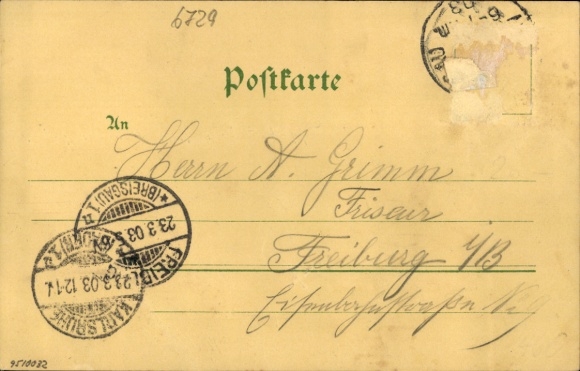 6729
Postkarte
An
Herrn A. Grimm
Friseur
Freiburg i/B
Eisenbahnstraße
FREIBURG
(BREISGAU) 1
23.3.03
KARLSRUHE
(BADEN) 1
23.3.03.12-1
9510032